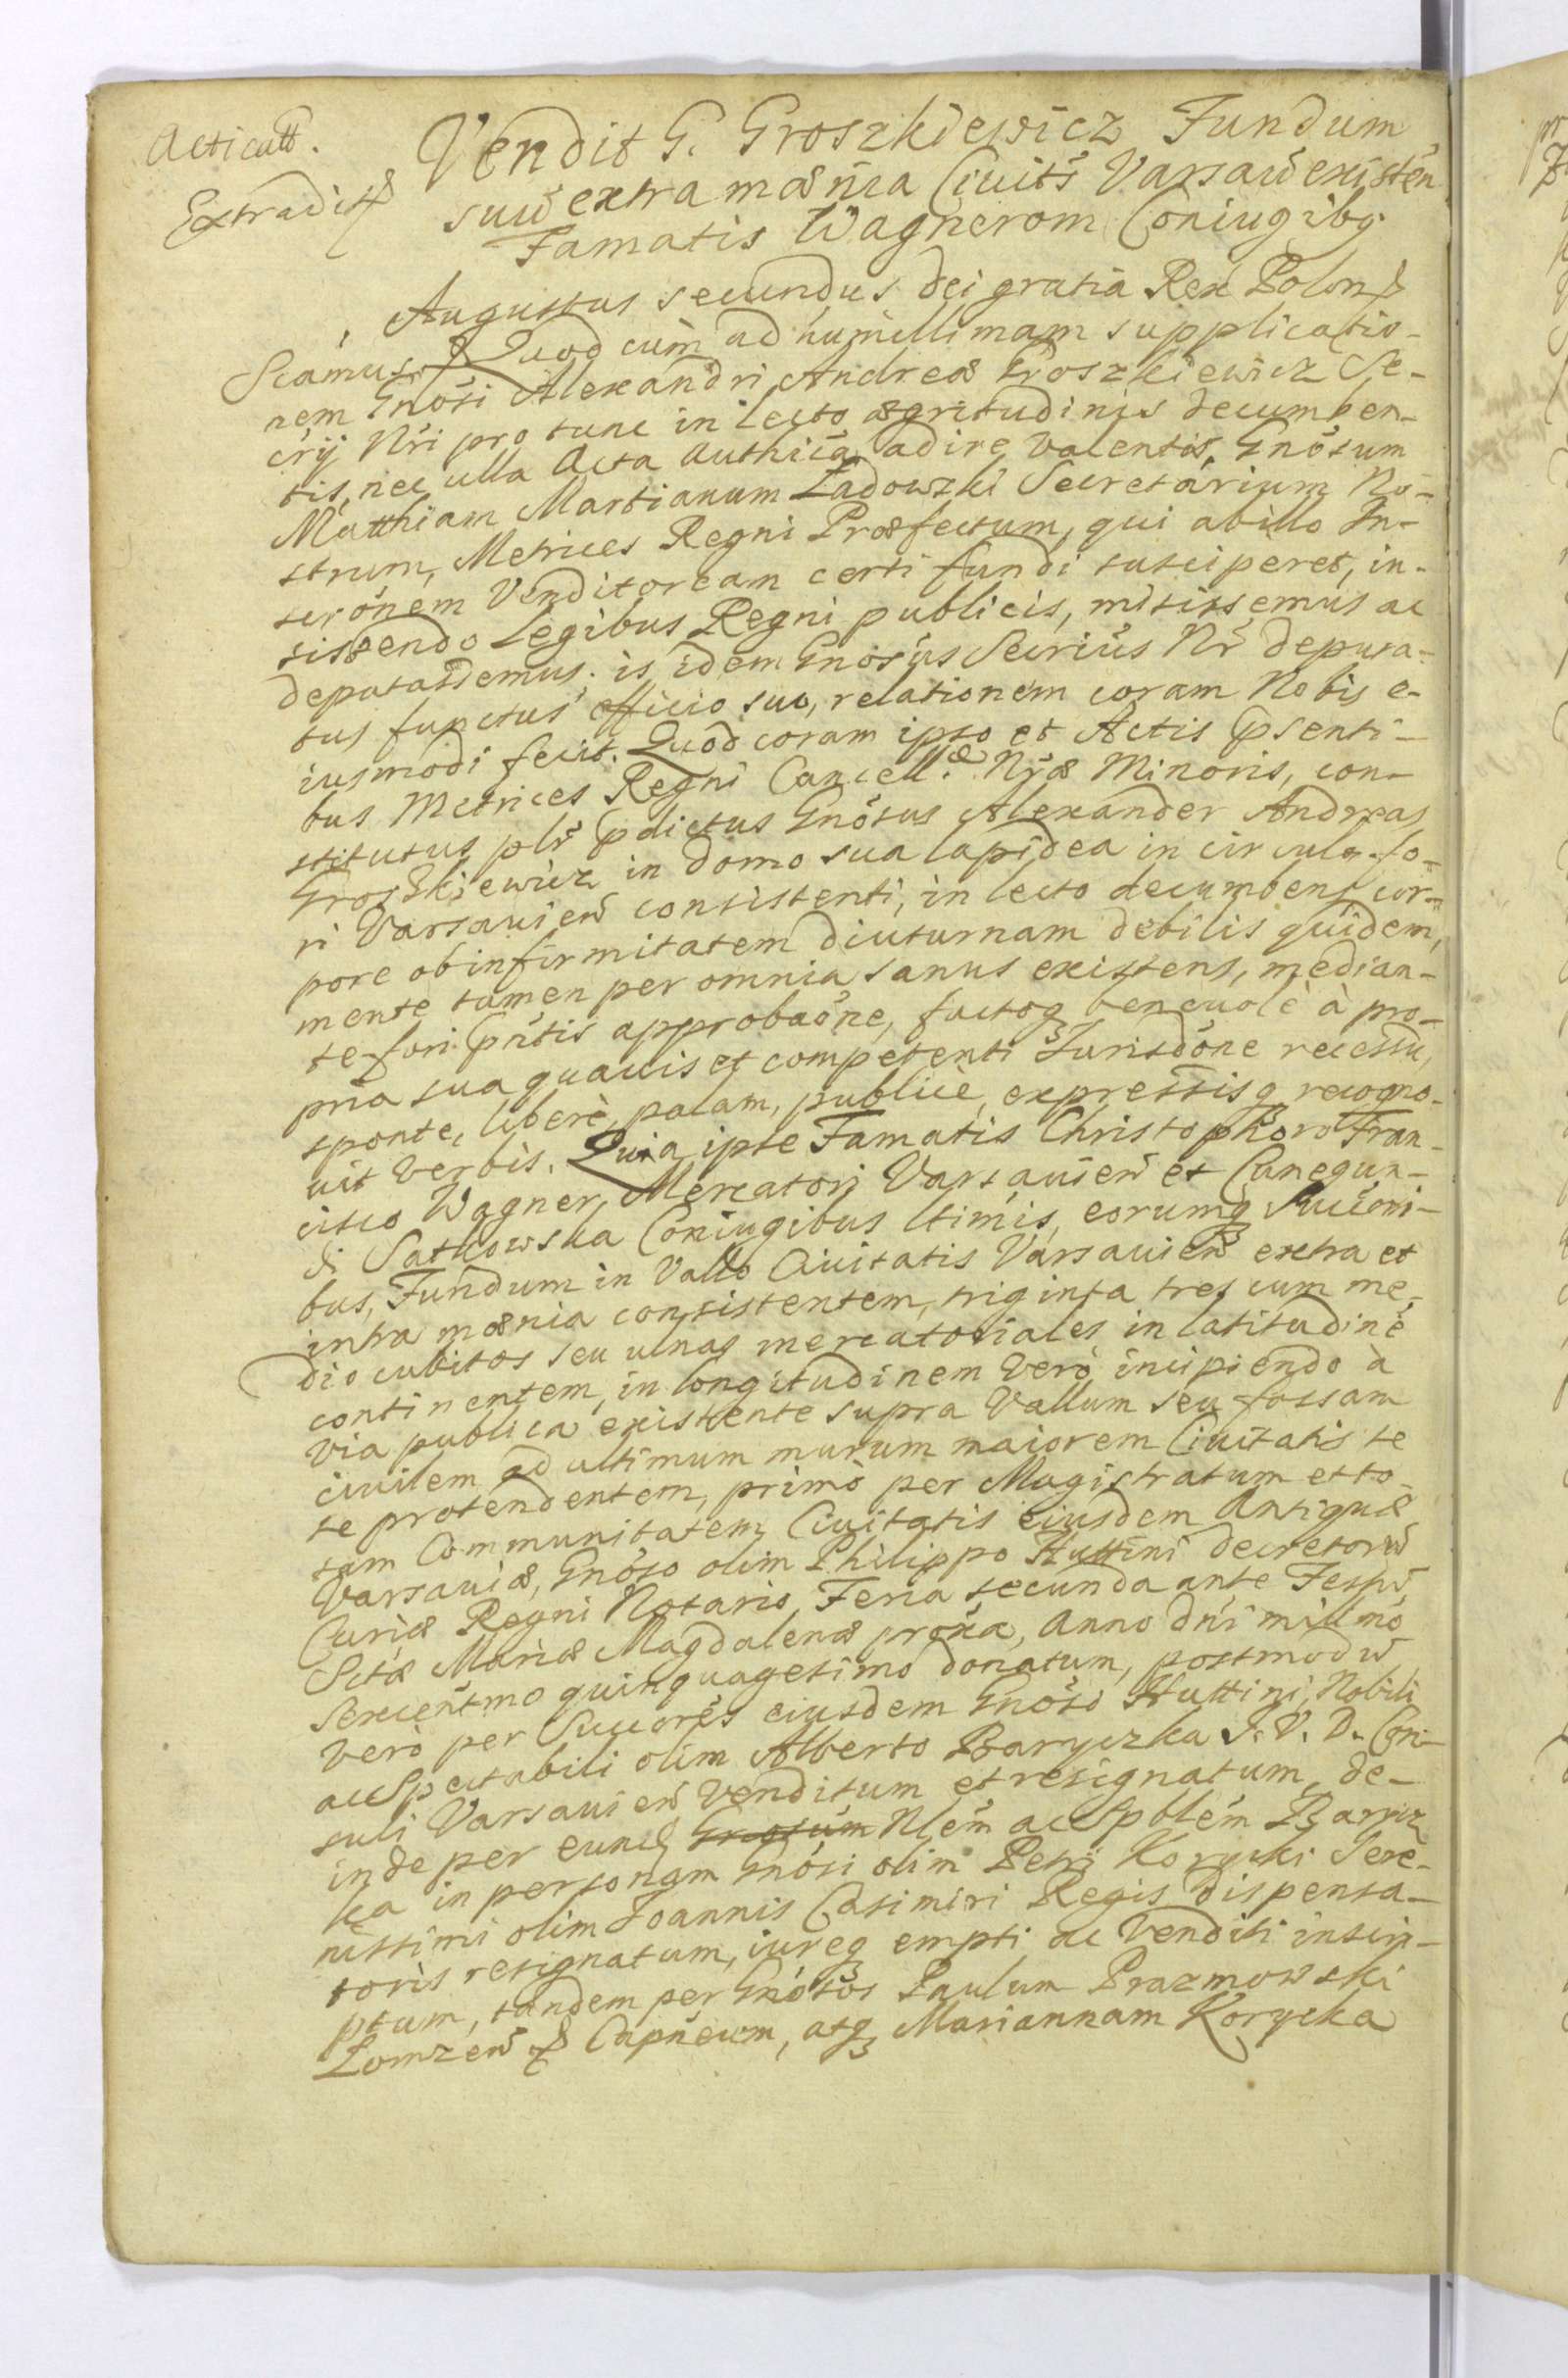 Acticatt.
Extradit
Vendit G. Groszkiewicz Fundum
suū extra mœnia Ciuitš Varsaw̃ existeñ
Famatis Wagnerom Coniugibq
Augustus secundus dei gratia Rex Polon
Sciamus. Quod cum ad humillimam supplicatio-
nem Gnōsi Alexandri Andreæ Groszkiewicz Se-
crij Nri pro tunc in lecto ægritudinis decumben-
tis, nec ulla Acta Authica adire valentis, Gnōsum
Matthiam Martianum Ładowski Secretarium No-
strum, Metrices Regni Præfectum, qui ab illo In-
scrōnem Venditoream certi fundi susciperet, in-
sistendo Legibus Regni publicis, misissemus ac
deputassemus. is idem Gnōsus Secrius Nr deputa-
tus functus officio suo, relationem coram Nobis e-
iusmodi fecit. Quod coram ipso et Actis psenti-
bus Metrices Regni Cancell.æ Nræ Minoris, con-
stitutus plr pdictus Gnōsus Alexander Andreas
Groszkiewicz in domo sua lapidea in circulo fo-
ri Varsauień consistenti, in lecto decumbens cor-
pore ob infirmitatem diuturnam debilis quidem,
mente tamen per omnia sanus existens, median-
te fori pñtis approbaōne, factoq beneuolè à pro-
pria sua quauis et competenti Jurisdōne recessu,
sponte, liberè, palam, publicè, expressisq recogno-
uit verbis. Quia ipse Famatis Christophoro Fran-
cisco Wagner, Mercatori Varsauień et Cunegun-
di Satkowska Coniugibus ltimis, eorumq Succori-
bus, Fundum in Vallo Ciuitatis Varsauień extra et
intra mœnia consistentem, triginta tres cum me-
dio cubitos seu ulnas mercatoriales in latitudine
continentem, in longitudinem verò incipiendo à
via publica existente supra Vallum seu fossam
ciuilem ad ultimum murum maiorem Ciuitatis se
se protendentem, primò per Magistratum et to-
tam Communitatem Ciuitatis eiusdem Antiquæ
Varsauiæ, Gnōso olim Philippo Huttini decretorū
Curiæ Regni Notario, Feria secunda ante Festū
Sctæ Mariæ Magdalenæ proxa, Anno dni millmo
Sexcentmo quinquagesimo donatum, postmodū
verò per Succores eiusdem Gnōsi Huttini, Nobili
ac Spectabili olim Alberto Baryczka J. V. D. Con-
suli Varsauień venditum et resignatum, de-
inde per eund Gnosum Nlem ac Spblem Barycz
ka in personam Gnōsi olim Petri Korycki Sere-
nissimi olim Joannis Casimiri Regis dispensa-
toris resignatum, iureq empti ac venditi inscri-
ptum, tandem per Gnōsos Paulum Prazmowski
Łomzeń Capñeum, atq Mariannam Korycka